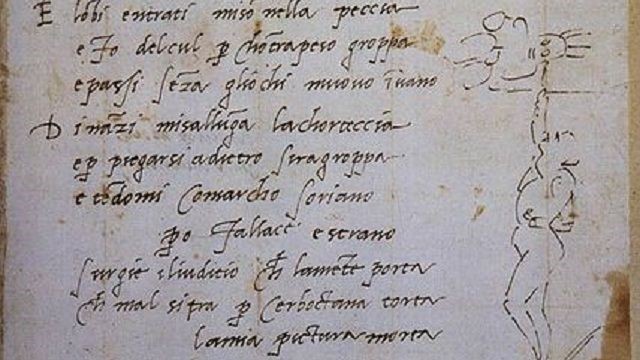 E lobi entrati miso nella peccia
e fo del cul p chotrapeso groppa
e passi seza gliochi muovo ivano
D inazi misalluga lachorteccia
e p piegarsi adietro siragroppa
e tedomi Comarcho soriano
po fallace e strano
surgie il iuditio ch lamete porta
ch mal sipra p Cerboctana torta
lamia pictura morta